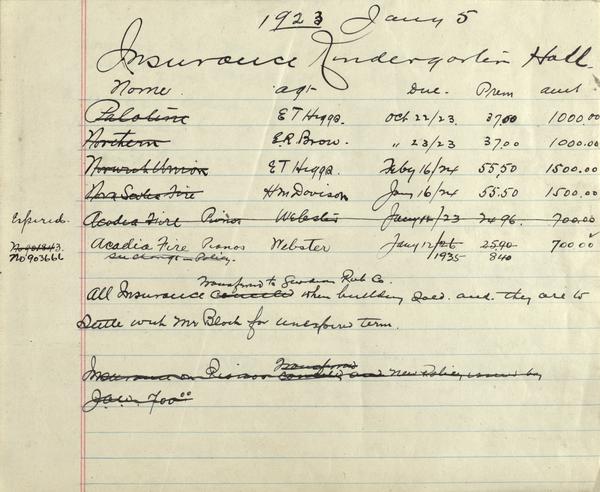 1923 Jany 5
Insurance Kindergarten Hall.
Name. agt. Due. Prem amt
Palatine E T Higgs. Oct 22/23 37.00 1000.00
Northern E.R. Brow. " 23/23 37.00 1000.00
Norwich Union E T Higgs. Feby 16/24 55.50 1500.00
Nova Scotia Fire H M Davison Jany 16/24 55.50 1500.00
Expired. Acadia Fire Pianos Webster Jany 12/23 24.96. 700.00
No 903666 Acadia Fire Pianos Webster Jany 12/26 25.90 700.00
See change in Policy. 1935 8.40
Transferred to Rub Co.
All Insurance when building sold. and they are to
Settle with Mr Black for unexpired term.
Transferred
Insurance on Pianos and New Policy issued by
700.00